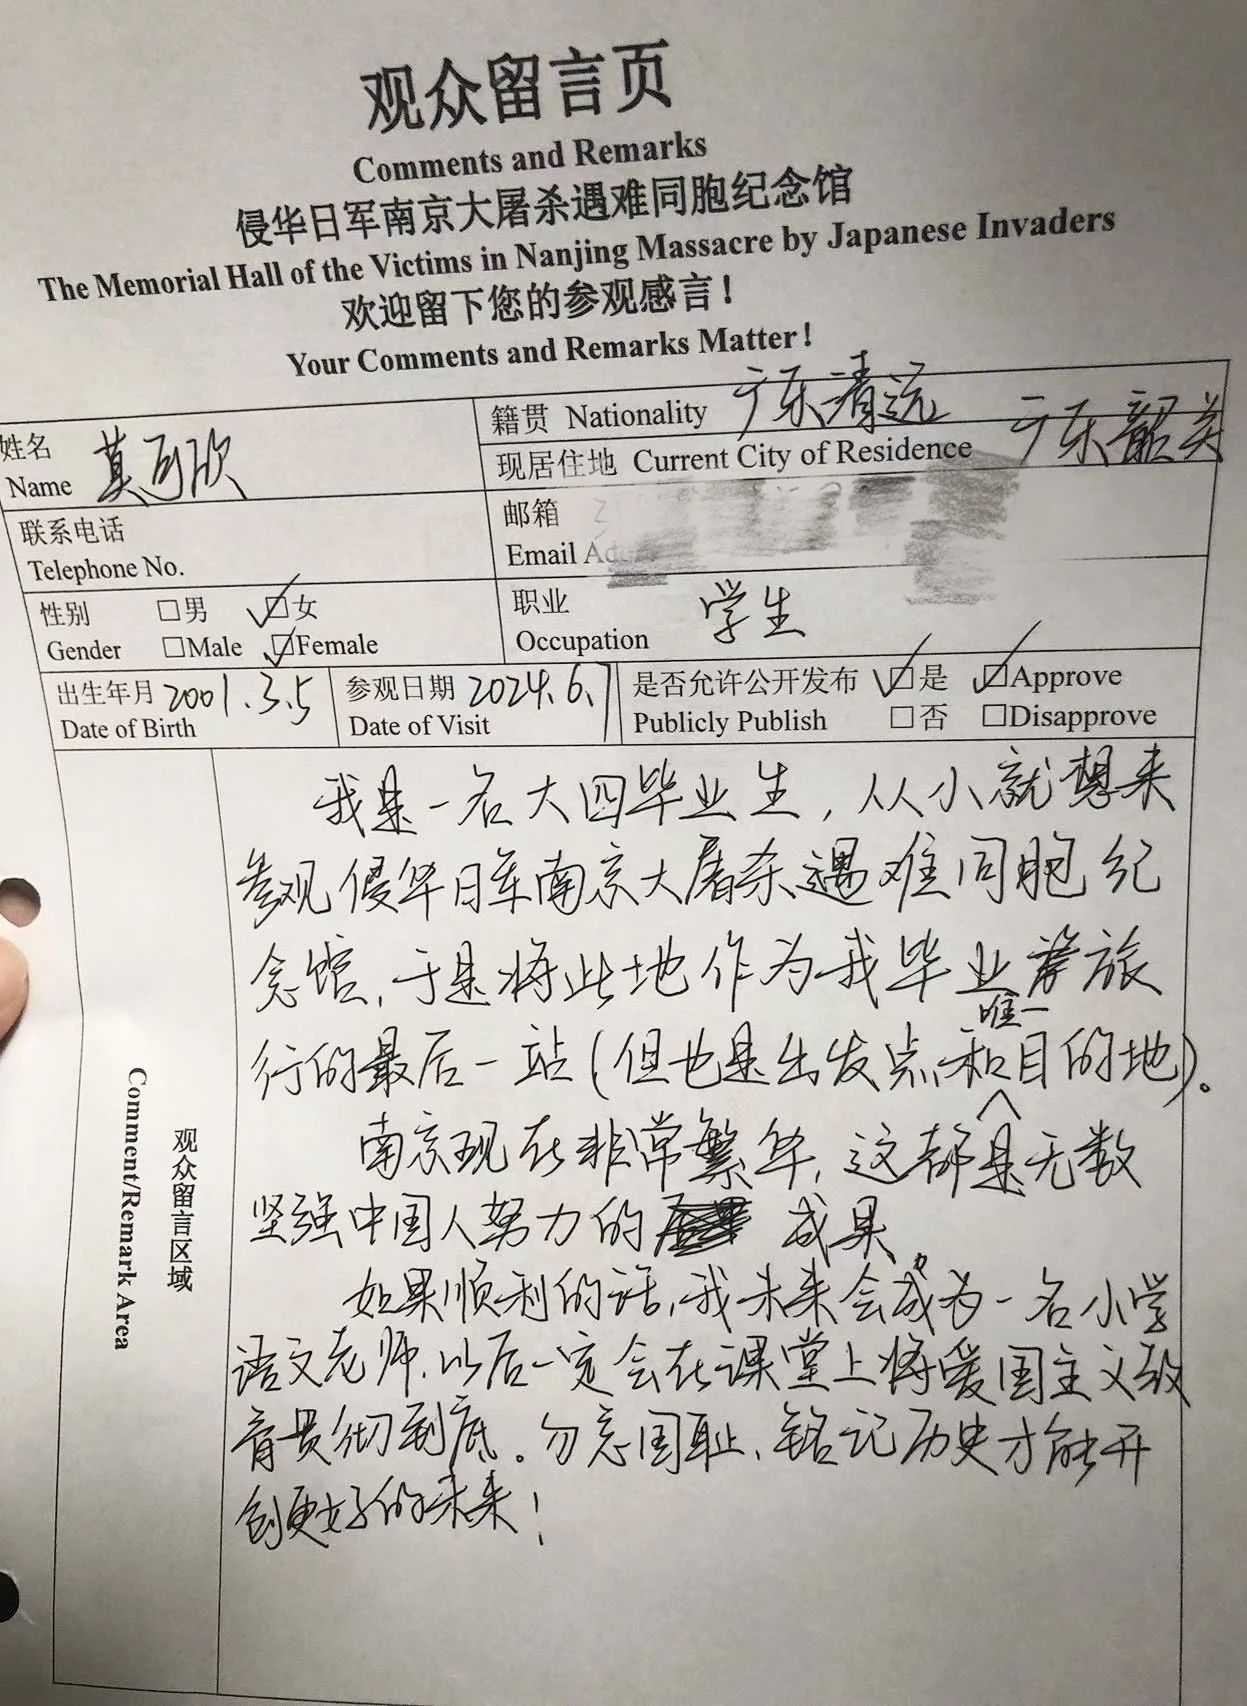 观众留言页
Comments and Remarks
侵华日军南京大屠杀遇难同胞纪念馆
The Memorial Hall of the Victims in Nanjing Massacre by Japanese Invaders
欢迎留下您的参观感言！
Your Comments and Remarks Matter!
姓名 Name 莫可欣
籍贯 Nationality 广东清远
现居住地 Current City of Residence 广东韶关
联系电话
Telephone No.
邮箱
Email
性别 □男 ☑女
Gender □Male ☑Female
职业 学生
Occupation
出生年月 2001.3.5
Date of Birth
参观日期 2024.6.7
Date of Visit
是否允许公开发布 ☑是 ☑Approve
Publicly Publish □否 □Disapprove
观众留言区域
Comment/Remark Area
我是一名大四毕业生，从小就想来
参观侵华日军南京大屠杀遇难同胞纪
念馆，于是将此地作为我毕业旅
行的最后一站（但也是出发点和唯一目的地）。
南京现在非常繁华，这都是无数
坚强中国人努力的成果。
如果顺利的话，我未来会成为一名小学
语文老师，以后一定会在课堂上将爱国主义教
育贯彻到底。勿忘国耻、铭记历史才能开
创更好的未来！